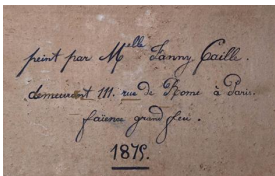 peint par Melle Fanny Caille.
demeurant 111. rue de Rome à Paris.
faïence grand feu.
1875.